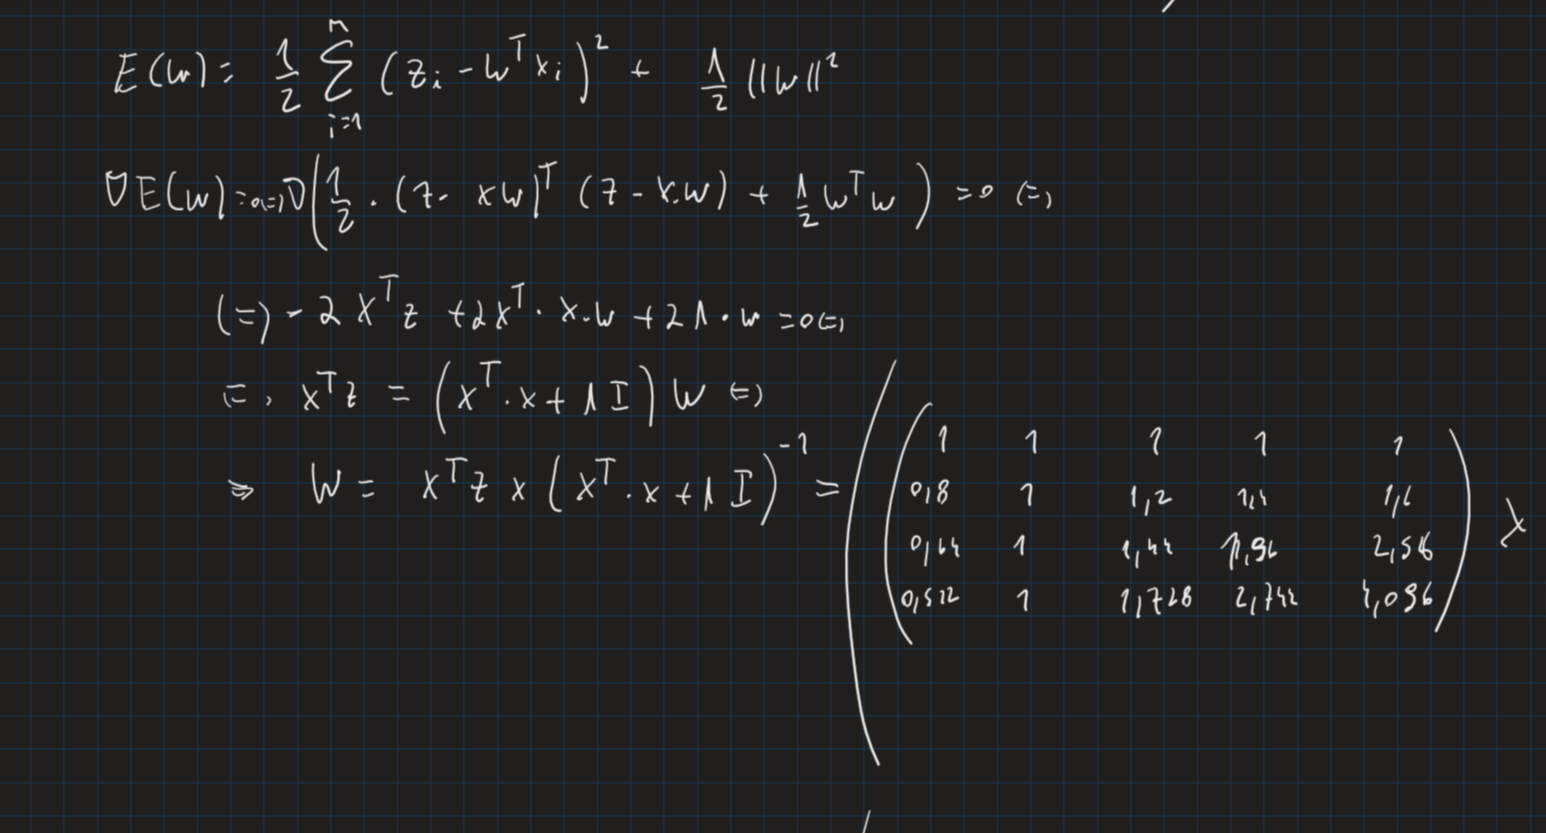 E(w) = 1/2 Σ_{i=1}^{n} (z_i - w^T x_i)^2 + λ/2 ||w||^2
∇E(w) = 0 (=) ∇(1/2 · (z - xw)^T (z - x.w) + λ/2 w^T w) = 0 (=)
(=) - 2 x^T z + 2x^T · x.w + 2λ · w = 0 (=)
(=) x^T z = (x^T · x + λI) w (=)
⇒ w = x^T z × (x^T · x + λI)^{-1} = (
1 1 1 1 1
0,8 1 1,2 1,4 1,6
0,64 1 1,44 1,96 2,56
0,512 1 1,728 2,744 4,096
) ×